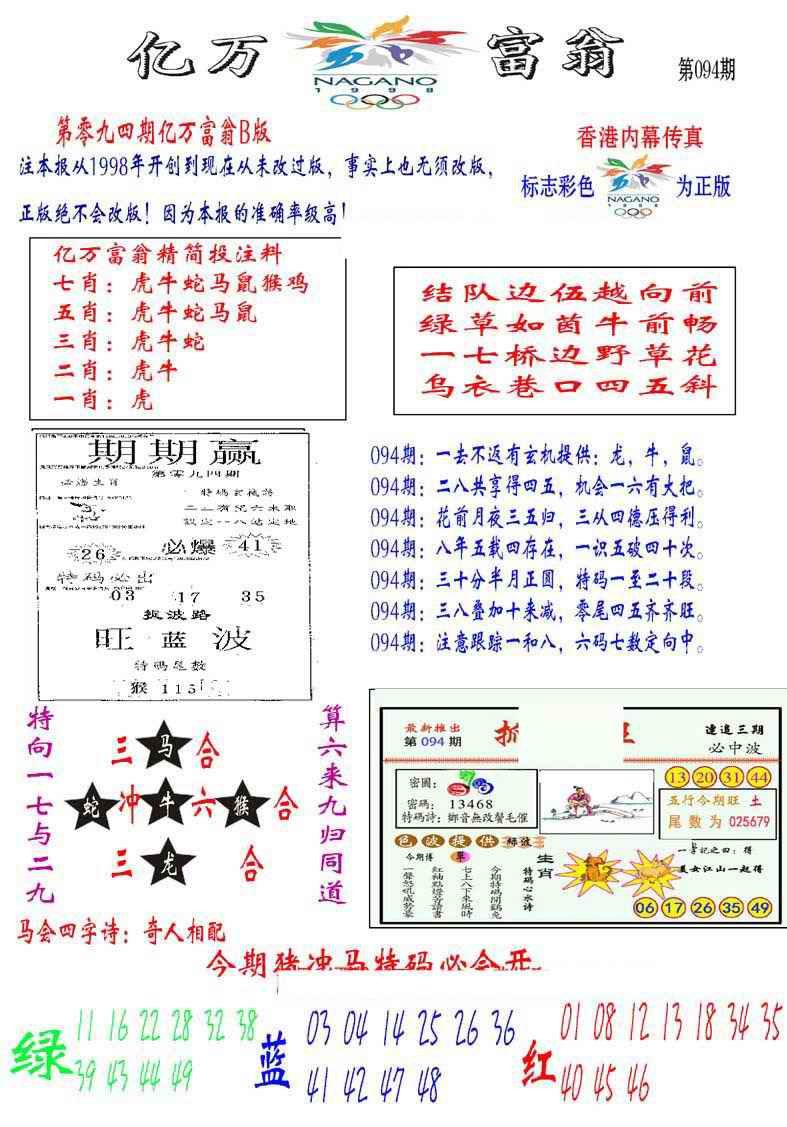 亿万富翁
NAGANO
1998
第094期
第零九四期亿万富翁B版
香港内幕传真
注本报从1998年开创到现在从未改过版，事实上也无须改版，
标志彩色
NAGANO
为正版
正版绝不会改版！因为本报的准确率级高!
亿万富翁精简投注料
七肖：虎牛蛇马鼠猴鸡
五肖：虎牛蛇马鼠
三肖：虎牛蛇
二肖：虎牛
一肖：虎
结队边伍越向前
绿草如茵牛前畅
一七桥边野草花
乌衣巷口四五斜
期期赢
第零九四期
必爆
26
41
特码必出
03 17 35
捉波路
旺蓝波
特码尾数
猴 115
094期：一去不返有玄机提供：龙，牛，鼠。
094期：二八共享得四五，机会一六有大把。
094期：花前月夜三五归，三从四德压得利。
094期：八年五载四存在，一识五破四十次。
094期：三十分半月正圆，特码一至二十段。
094期：三八叠加十来减，零尾四五齐齐旺。
094期：注意跟踪一和八，六码七数定向中。
特向一七与二九
三马合
蛇冲牛六猴合
三龙合
算六来九归同道
最新推出
第094期
连追三期
必中波
密圖：
密碼：13468
特碼詩：鄉音無改鬢毛催
13 20 31 44
五行今期旺 土
尾数为 025679
色波提供
今期博
單
一聲怒吼威勢豪
红袖點燈答讀書
七上八下來風時
今期特碼開鷄兔
特碼心水诗
生肖
一字記之曰：得
美女江山一起得
06 17 26 35 49
马会四字诗：奇人相配
今期猪冲马特码必会开
绿
11 16 22 28 32 38
39 43 44 49
蓝
03 04 14 25 26 36
41 42 47 48
红
01 08 12 13 18 34 35
40 45 46